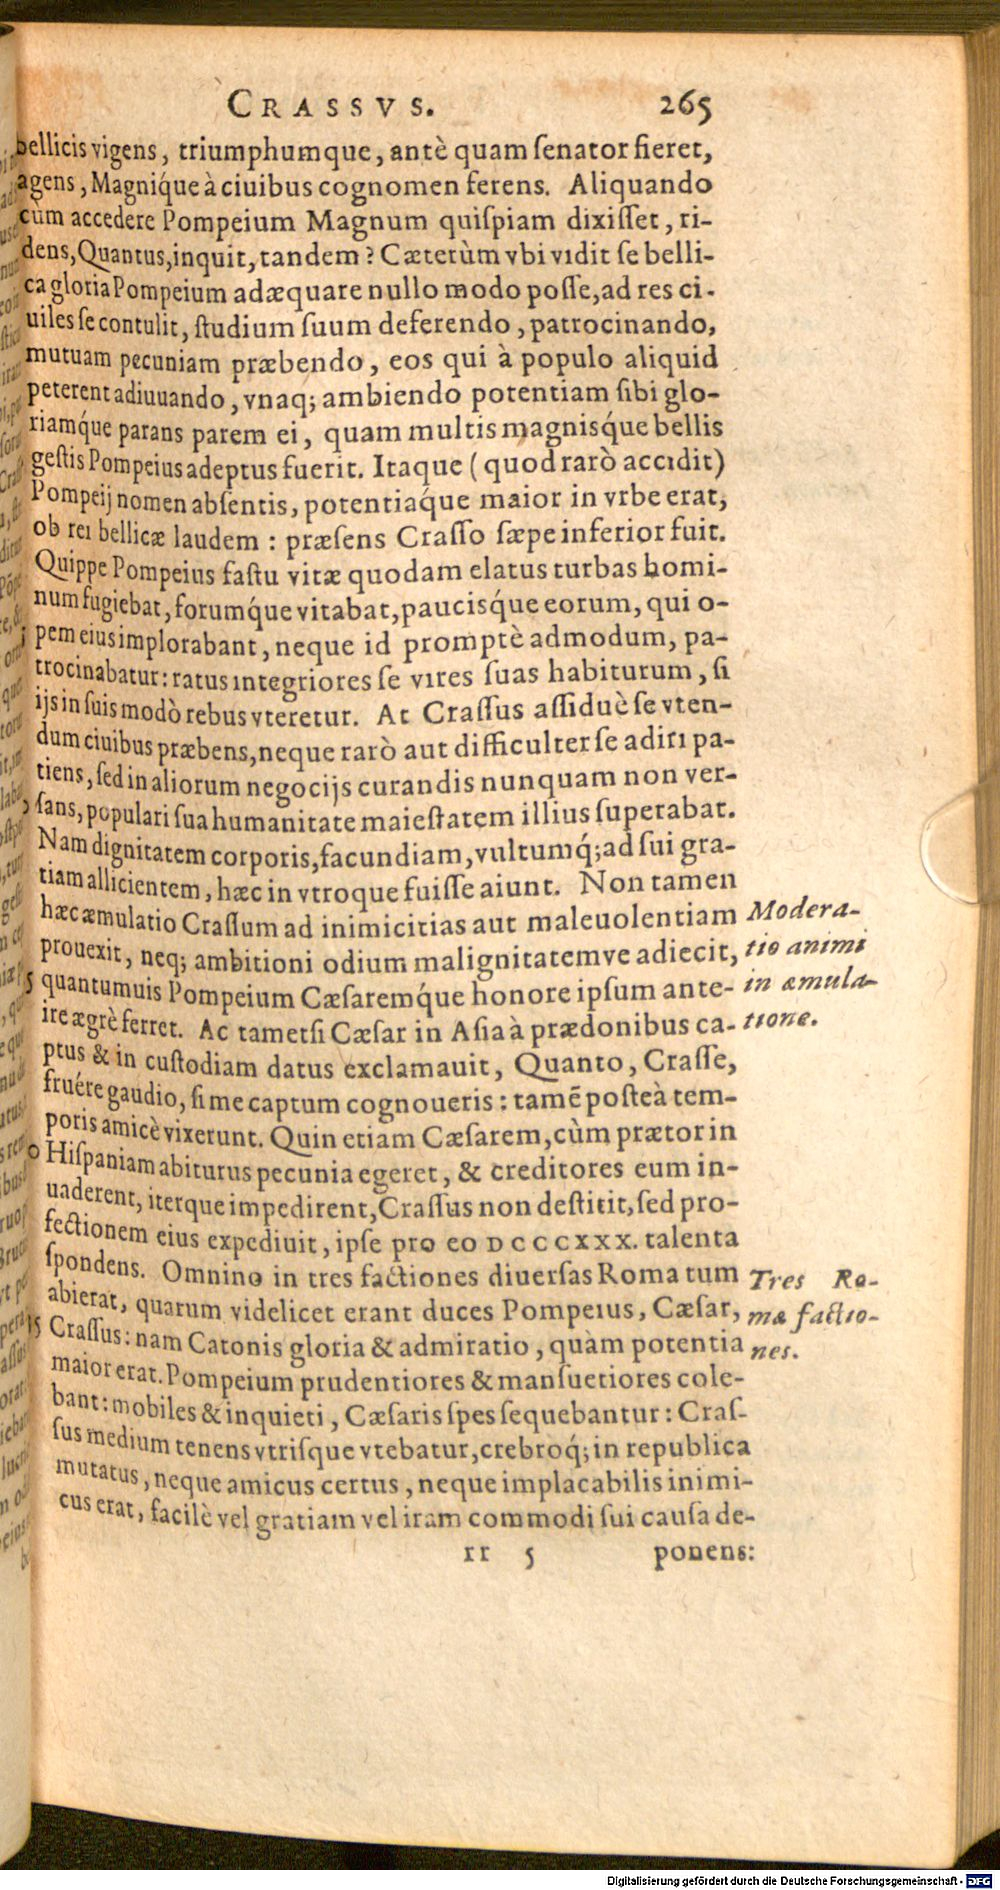 CRASSVS. 265
bellicis vigens, triumphumque, antè quam ſenator fieret,
agens, Magniq́ue à ciuibus cognomen ferens. Aliquando
cùm accedere Pompeium Magnum quiſpiam dixiſſet, ri-
dens, Quantus, inquit, tandem? Cæterùm vbi vidit ſe belli-
ca gloria Pompeium adæquare nullo modo poſſe, ad res ci-
uiles ſe contulit, ſtudium ſuum deferendo, patrocinando,
mutuam pecuniam præbendo, eos qui à populo aliquid
peterent adiuuando, vnaq; ambiendo potentiam ſibi glo-
riamq́ue parans parem ei, quam multis magnisq́ue bellis
geſtis Pompeius adeptus fuerit. Itaque (quod rarò accidit)
Pompeij nomen abſentis, potentiaq́ue maior in vrbe erat,
ob rei bellicæ laudem: præſens Craſſo ſæpe inferior fuit.
Quippe Pompeius faſtu vitæ quodam elatus turbas homi-
num fugiebat, forumq́ue vitabat, paucisq́ue eorum, qui o-
pem eius implorabant, neque id promptè admodum, pa-
trocinabatur: ratus integriores ſe vires ſuas habiturum, ſi
ijs in ſuis modò rebus vteretur. At Craſſus aſſiduè ſe vten-
dum ciuibus præbens, neque rarò aut difficulter ſe adiri pa-
tiens, ſed in aliorum negocijs curandis nunquam non ver-
ſans, populari ſua humanitate maieſtatem illius ſuperabat.
Nam dignitatem corporis, facundiam, vultumq́; ad ſui gra-
tiam allicientem, hæc in vtroque fuiſſe aiunt. Non tamen
hæc æmulatio Craſſum ad inimicitias aut maleuolentiam
prouexit, neq; ambitioni odium malignitatemve adiecit,
quantumuis Pompeium Cæſaremq́ue honore ipſum ante-
ire ægrè ferret. Ac tametſi Cæſar in Aſia à prædonibus ca-
ptus & in cuſtodiam datus exclamauit, Quanto, Craſſe,
fruére gaudio, ſi me captum cognoueris: tamẽ poſteà tem-
poris amicè vixerunt. Quin etiam Cæſarem, cùm prætor in
Hiſpaniam abiturus pecunia egeret, & creditores eum in-
uaderent, iterque impedirent, Craſſus non deſtitit, ſed pro-
fectionem eius expediuit, ipſe pro eo DCCCXXX. talenta
ſpondens. Omnino in tres factiones diuerſas Roma tum
abierat, quarum videlicet erant duces Pompeius, Cæſar,
Craſſus: nam Catonis gloria & admiratio, quàm potentia
maior erat. Pompeium prudentiores & manſuetiores cole-
bant: mobiles & inquieti, Cæſaris ſpes ſequebantur: Craſ-
ſus medium tenens vtriſque vtebatur, crebroq́; in republica
mutatus, neque amicus certus, neque implacabilis inimi-
cus erat, facilè vel gratiam vel iram commodi ſui cauſa de-
rr 5 ponens:
Modera-
tio animi
in æmula-
tione.
Tres Ro-
mæ factio-
nes.
Digitalisierung gefördert durch die Deutsche Forschungsgemeinschaft - DFG